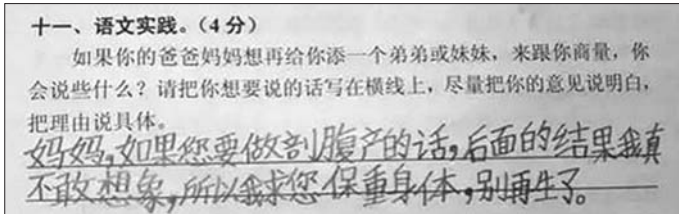 十一、语文实践。（4分）
如果你的爸爸妈妈想再给你添一个弟弟或妹妹，来跟你商量，你
会说些什么？请把你想要说的话写在横线上，尽量把你的意见说明白，
把理由说具体。
妈妈，如果您要做剖腹产的话，后面的结果我真
不敢想象，所以我求您保重身体，别再生了。